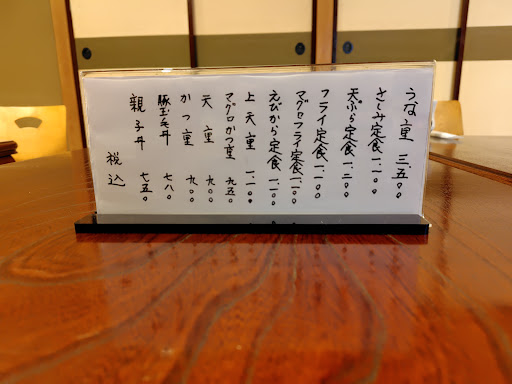 うな重 三、五〇〇
さしみ定食 一、一〇〇
天ぷら定食 一、三〇〇
フライ定食 一、一〇〇
マグロフライ定食 一、一〇〇
えびから定食 一、一〇〇
上天重 一、一〇〇
マグロかつ重 九五〇
天重 九〇〇
かつ重 九〇〇
豚玉丼 七八〇
親子丼 七五〇
税込